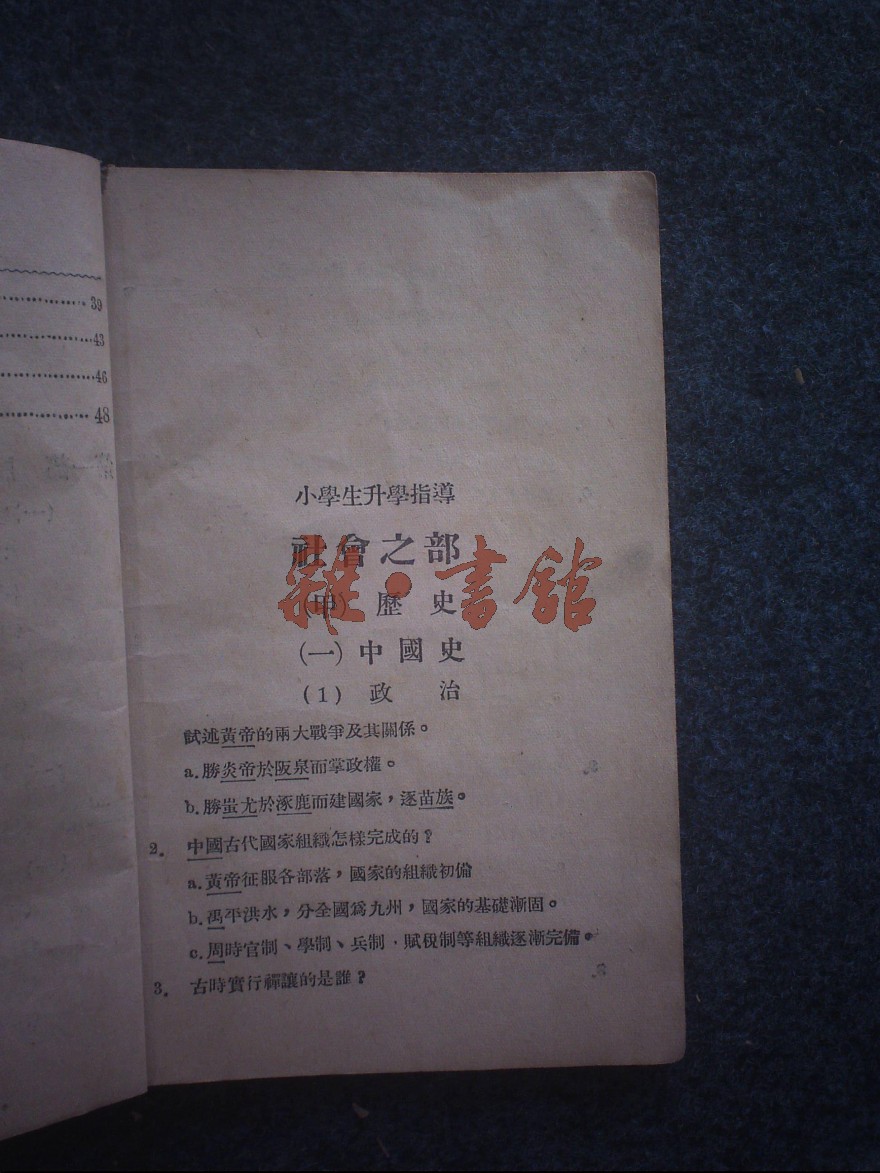 39
43
46
48
小學生升學指導
社會之部
雜·書館
(甲) 歷史
(一) 中國史
(1) 政治
試述黃帝的兩大戰爭及其關係。
a.勝炎帝於阪泉而掌政權。
b.勝蚩尤於涿鹿而建國家，逐苗族。
2. 中國古代國家組織怎樣完成的？
a.黃帝征服各部落，國家的組織初備
b.禹平洪水，分全國爲九州，國家的基礎漸固。
c.周時官制、學制、兵制、賦稅制等組織逐漸完備。
3. 古時實行禪讓的是誰？